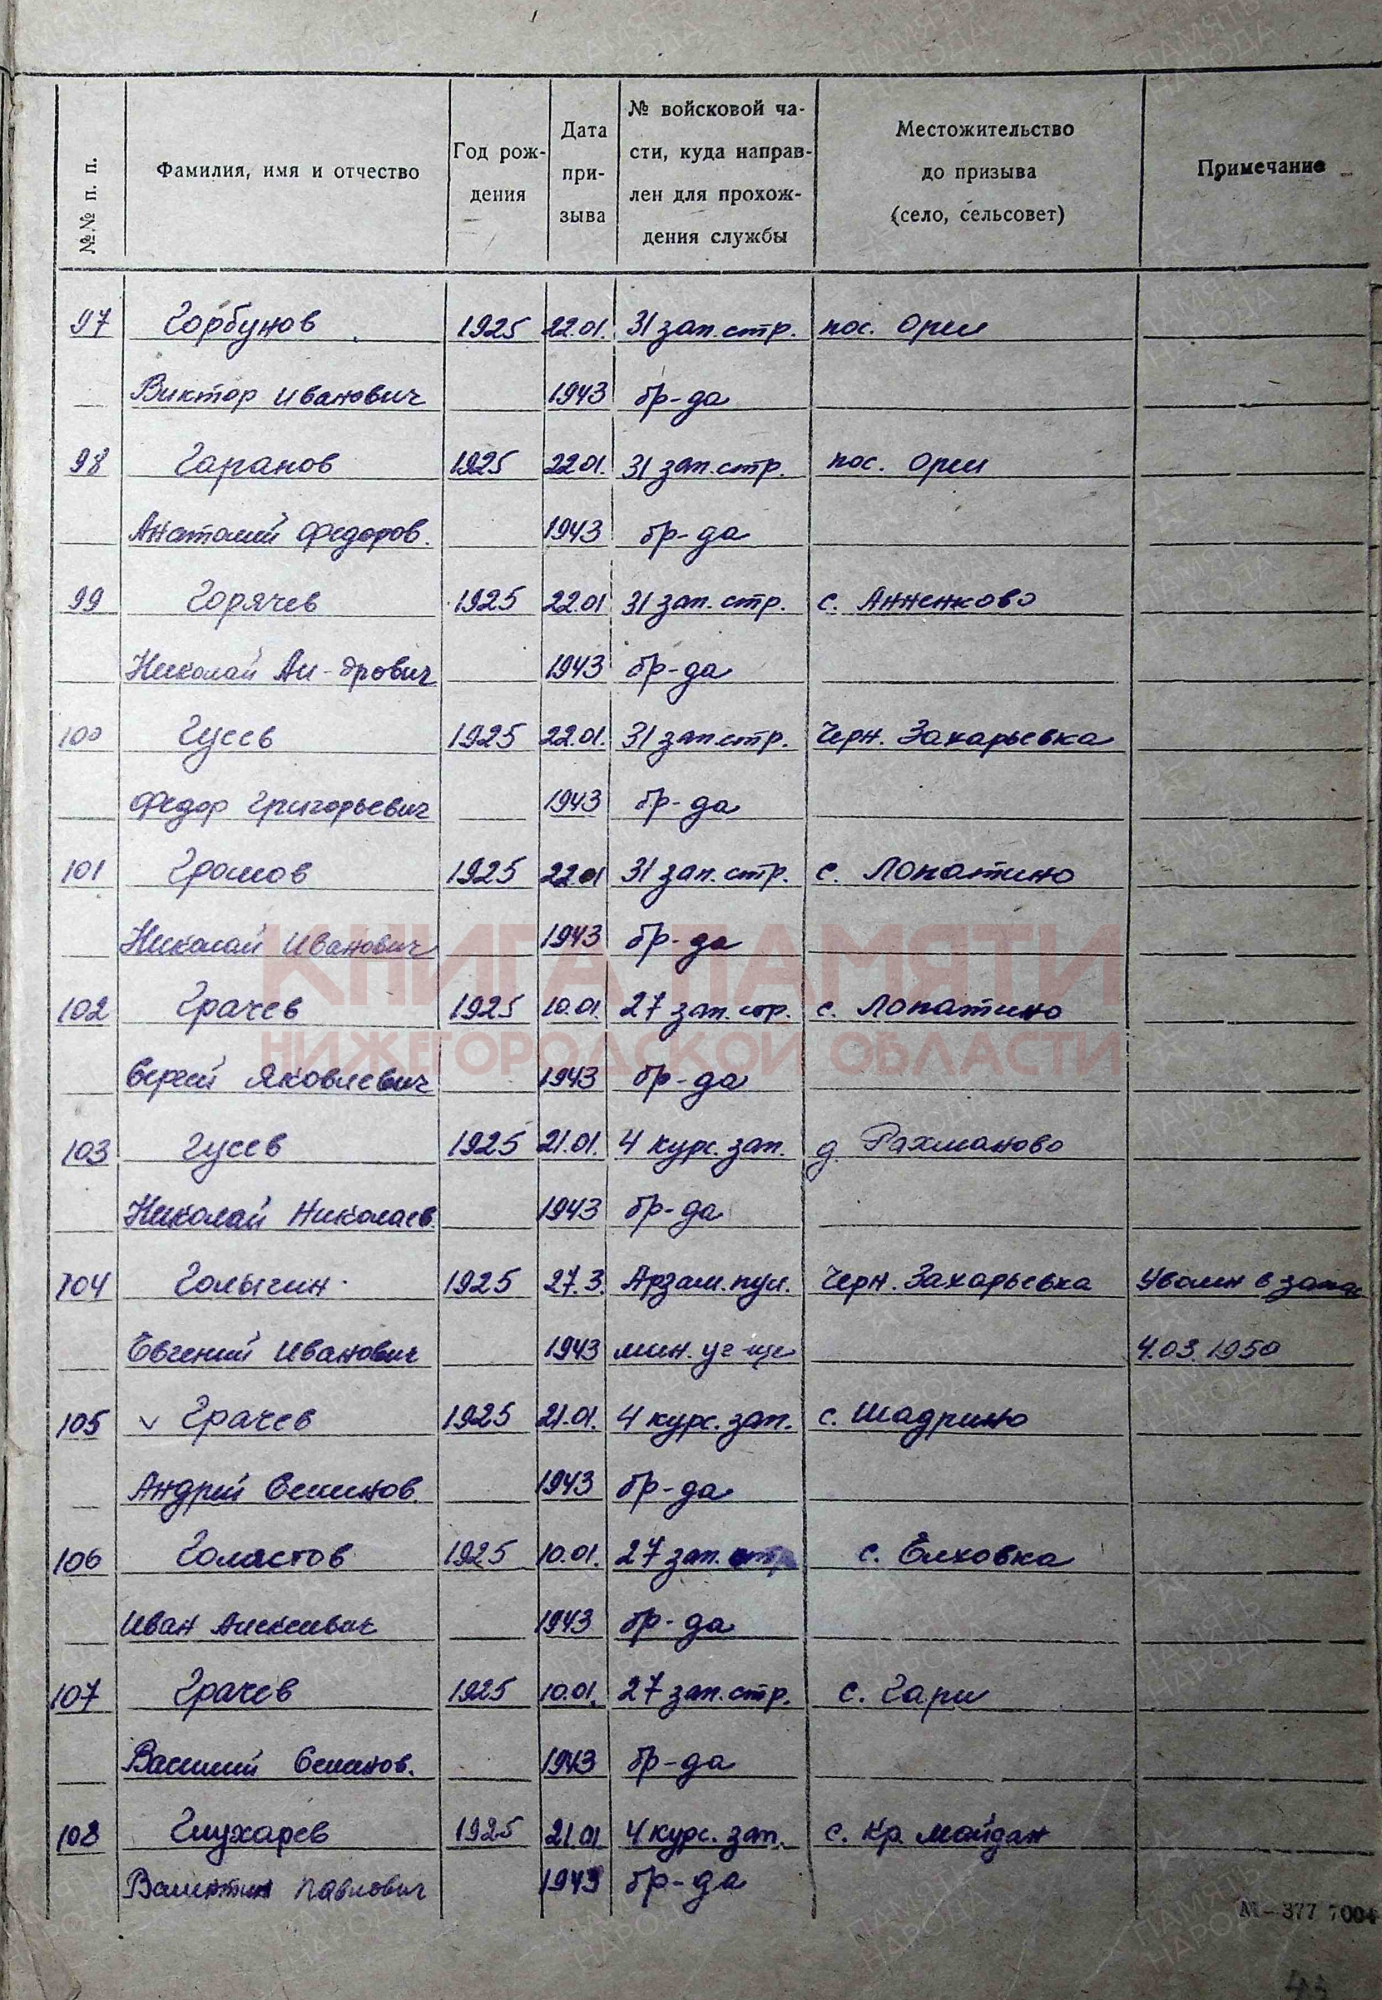 №№ п. п.
Фамилия, имя и отчество
Год рож-
дения
Дата
при-
зыва
№ войсковой ча-
сти, куда направ-
лен для прохож-
дения службы
Местожительство
до призыва
(село, сельсовет)
Примечание
97 Горбунов 1925 22.01. 31 зап. стр. пос. Орги
Виктор Иванович 1943 бр-да
98 Гаранов 1925 22.01. 31 зап. стр. пос. Орги
Анатолий Федоров. 1943 бр-да
99 Горячев 1925 22.01 31 зап. стр. с. Анненково
Николай Ан-дрович 1943 бр-да
100 Гусев 1925 22.01. 31 зап. стр. Черн. Захарьевка
Федор Григорьевич 1943 бр-да
101 Громов 1925 22.01 31 зап. стр. с. Лопатино
Николай Иванович 1943 бр-да
102 Грачев 1925 10.01. 27 зап. стр. с. Лопатино
Сергей Яковлевич 1943 бр-да
103 Гусев 1925 21.01. 4 курс. зап. д. Рахманово
Николай Николаев. 1943 бр-да
104 Голыгин 1925 27.3. Арзам. пул. Черн. Захарьевка Уволен в запас
Евгений Иванович 1943 мин. уч-ще 4.03.1950
105 v Грачев 1925 21.01. 4 курс. зап. с. Шадрино
Андрей Семенов. 1943 бр-да
106 Голастов 1925 10.01. 27 зап. стр с. Елховка
Иван Алексеевич 1943 бр-да
107 Грачев 1925 10.01. 27 зап. стр. с. Гари
Василий Семенов. 1943 бр-да
108 Глухарев 1925 21.01 4 курс. зап. с. Кр. Майдан
Валентин Павлович 1943 бр-да
М-377 7004
43
КНИГА ПАМЯТИ
НИЖЕГОРОДСКОЙ ОБЛАСТИ
ПАМЯТЬ
НАРОДА